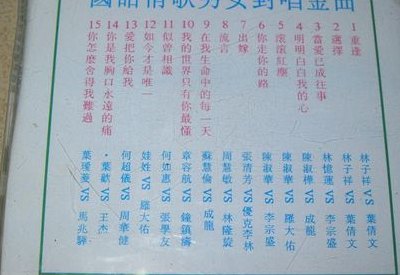 國語情歌男女對唱金曲
1 重逢 林子祥 VS 葉倩文
2 選擇 林子祥 VS 葉倩文
3 當愛已成往事 林憶蓮 VS 李宗盛
4 明明白白我的心 陳淑樺 VS 成龍
5 滾滾紅塵 陳淑華 VS 羅大佑
6 你走你的路 陳淑樺 VS 李宗盛
7 出嫁 張清芳 VS 優克李林
8 流言 周慧敏 VS 林隆旋
9 在我生命中的每一天 蘇慧倫 VS 成龍
10 我的世界只有你最懂 章容舫 VS 鍾鎮濤
11 似曾相識 VS 張學友
12 如今才是唯一 娃娃 VS 羅大佑
13 愛把你給我 VS 周華健
14 你是我胸口永遠的痛 葉歡 VS 王杰
15 你怎麼捨得我難過 葉璦菱 VS 馬兆駿